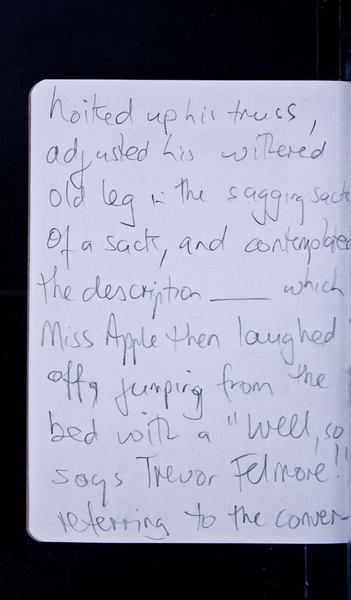 hoited up his truss,
adjusted his withered
old leg in the sagging sack
Of a sack, and contemplated
the description ____ which
Miss Apple then laughed
off, jumping from the
bed with a "Well, so
says Trevor Felmore!"
referring to the conver-